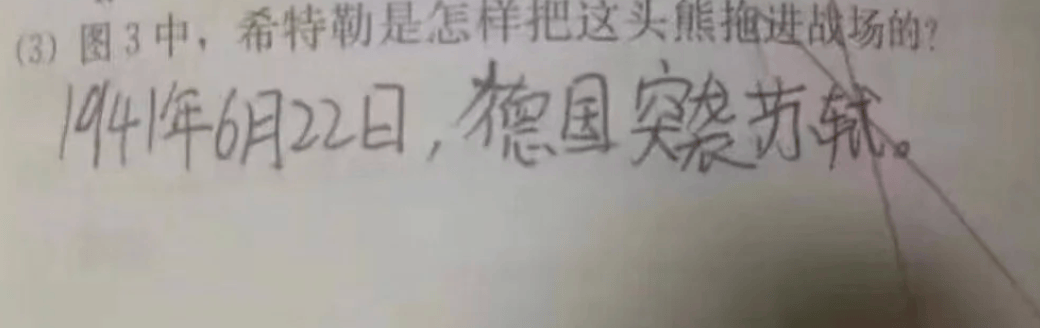 (3) 图3中，希特勒是怎样把这头熊拖进战场的?
1941年6月22日，德国突袭苏轼。